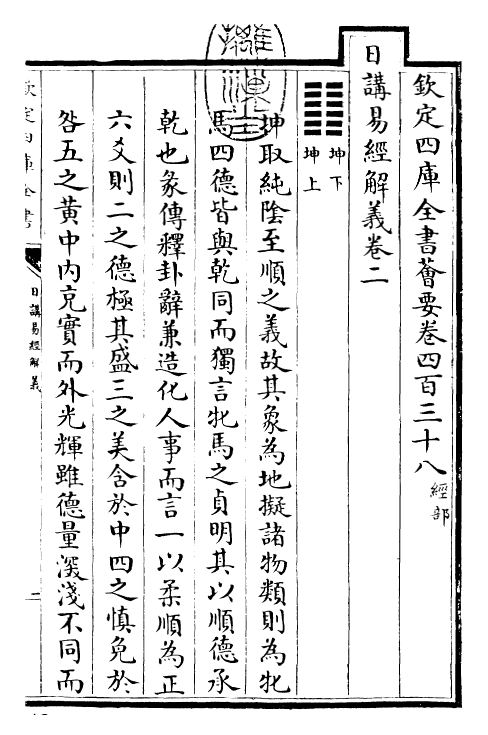 欽定四庫全書薈要卷四百三十八 經部
日講易經解義卷二
坤下
坤上
坤取純陰至順之義故其象為地擬諸物類則為牝
馬四德皆與乾同而獨言牝馬之貞明其以順德承
乾也彖傳釋卦辭兼造化人事而言一以柔順為正
六爻則二之德極其盛三之美含於中四之慎免於
咎五之黃中内充實而外光輝雖德量深淺不同而
欽定四庫全書
日講易經解義